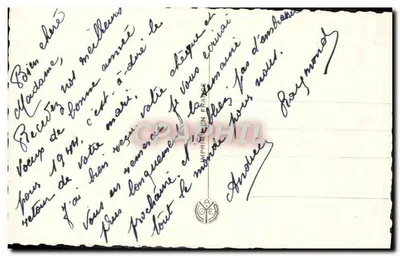 Bien chère
Madame,
Recevez nos meilleurs
voeux de bonne année
pour 1941, c'est-à-dire le
retour de votre mari.
J'ai bien reçu votre chèque et
vous en remercie. Je vous écrirai
plus longuement la semaine
prochaine. N'oubliez pas d'embrasser
tout le monde pour nous.
Andrée
Raymond
IMPRIMÉ EN FRANCE